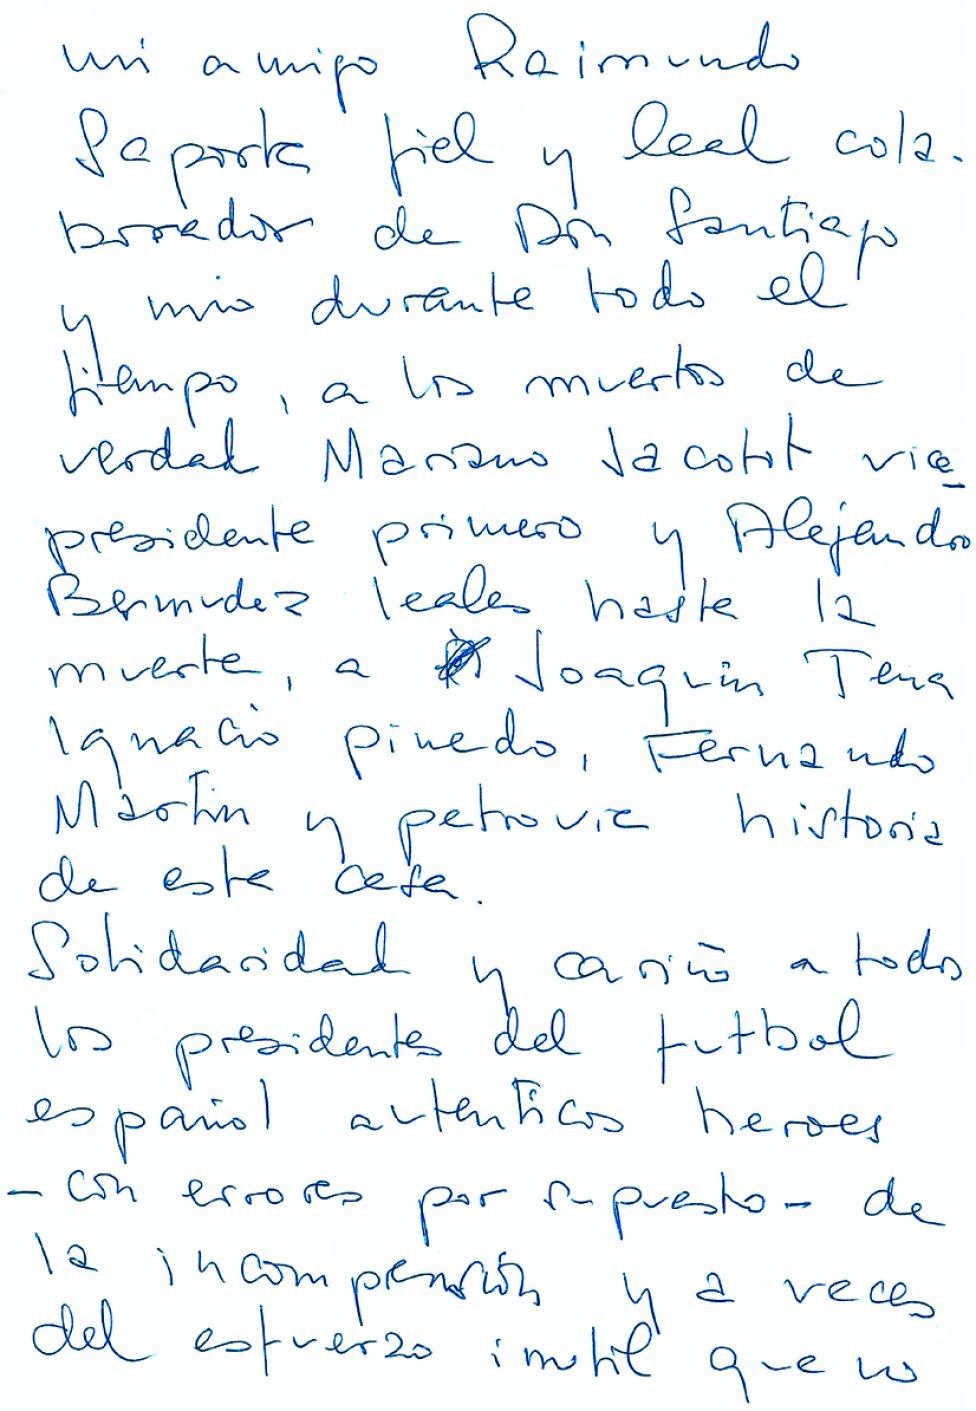 mi amigo Raimundo
Saporta fiel y leal cola-
borador de Don Santiago
y mio durante todo el
tiempo, a los muertos de
verdad Mariano Jacotot vice
presidente primero y Alejandro
Bermudez leales hasta la
muerte, a Joaquin Tena
Ignacio pinedo, Fernando
Martin y petrovic historia
de esta casa.
Solidaridad y cariño a todos
los presidentes del futbol
español autenticos heroes
- con errores por supuesto - de
la incomprensión y a veces
del esfuerzo inutil que no